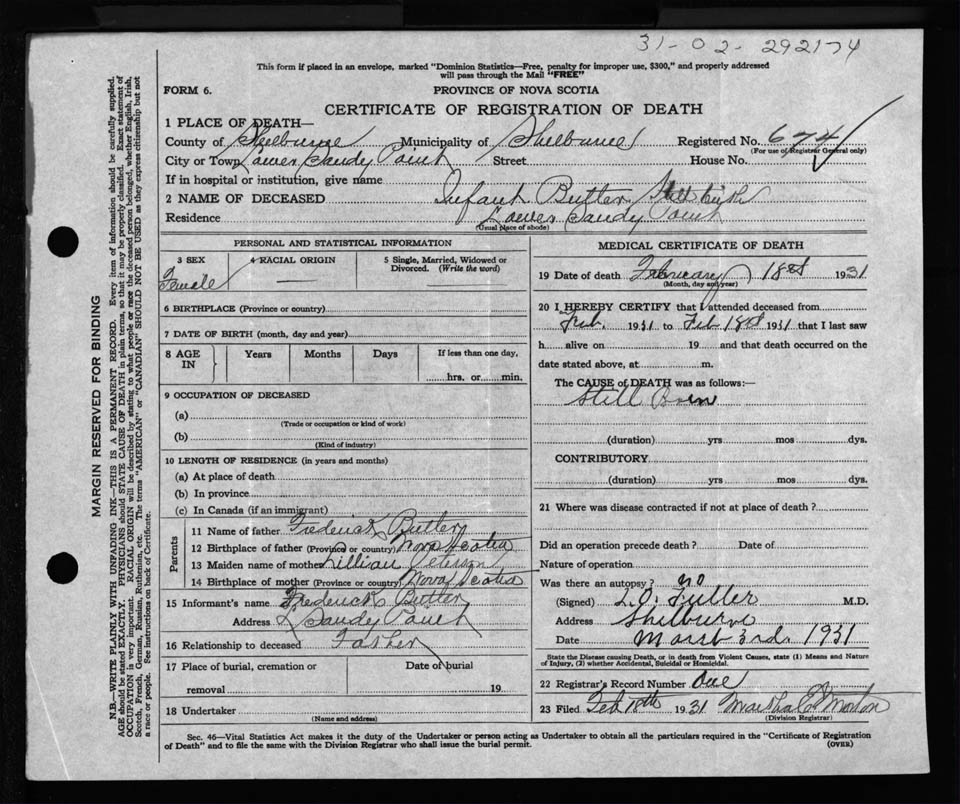 31-02-292174
This form if placed in an envelope, marked "Dominion Statistics—Free, penalty for improper use, $300," and properly addressed
will pass through the Mail "FREE"
FORM 6.
PROVINCE OF NOVA SCOTIA
CERTIFICATE OF REGISTRATION OF DEATH
1 PLACE OF DEATH—
County of Shelburne Municipality of Shelburne Registered No. 674
(For use of Registrar General only)
City or Town Lower Sandy Point Street House No.
If in hospital or institution, give name
2 NAME OF DECEASED Infant Butler Still birth
Residence Lower Sandy Point
(Usual place of abode)
PERSONAL AND STATISTICAL INFORMATION
3 SEX 4 RACIAL ORIGIN 5 Single, Married, Widowed or
Divorced. (Write the word)
Female — —
6 BIRTHPLACE (Province or country)
7 DATE OF BIRTH (month, day and year)
8 AGE IN Years Months Days If less than one day,
hrs. or min.
9 OCCUPATION OF DECEASED
(a)
(Trade or occupation or kind of work)
(b)
(Kind of industry)
10 LENGTH OF RESIDENCE (in years and months)
(a) At place of death
(b) In province
(c) In Canada (if an immigrant)
Parents
11 Name of father Frederick Butler
12 Birthplace of father (Province or country) Nova Scotia
13 Maiden name of mother Lillian Peterson
14 Birthplace of mother (Province or country) Nova Scotia
15 Informant's name Frederick Butler
Address Sandy Point
16 Relationship to deceased Father
17 Place of burial, cremation or Date of burial
removal 19
18 Undertaker
(Name and address)
MEDICAL CERTIFICATE OF DEATH
19 Date of death February 18th 1931
(Month, day and year)
20 I HEREBY CERTIFY that I attended deceased from
Feb. 1931 to Feb 18th 1931 that I last saw
h alive on 19 and that death occurred on the
date stated above, at m.
The CAUSE of DEATH was as follows:—
Still Born
(duration) yrs mos dys.
CONTRIBUTORY
(duration) yrs mos dys.
21 Where was disease contracted if not at place of death?
Did an operation precede death? Date of
Nature of operation
Was there an autopsy? no
(Signed) L.O. Fuller M.D.
Address Shelburne
Date March 3rd. 1931
State the Disease causing Death, or in death from Violent Causes, state (1) Means and Nature
of Injury, (2) whether Accidental, Suicidal or Homicidal.
22 Registrar's Record Number One
23 Filed Feb 18th 1931 Marshal E Morton
(Division Registrar)
Sec. 46—Vital Statistics Act makes it the duty of the Undertaker or person acting as Undertaker to obtain all the particulars required in the "Certificate of Registration
of Death" and to file the same with the Division Registrar who shall issue the burial permit.
(OVER)
MARGIN RESERVED FOR BINDING
N.B.—WRITE PLAINLY WITH UNFADING INK—THIS IS A PERMANENT RECORD. Every item of information should be carefully supplied.
AGE should be stated EXACTLY. PHYSICIANS should STATE CAUSE OF DEATH in plain terms, so that it may be properly classified. Exact statement of
OCCUPATION is very important. RACIAL ORIGIN will be described by stating to what people or race the deceased person belonged, whether English, Irish,
Scotch, French, German, Russian, Ruthenian, etc. The terms "AMERICAN" or "CANADIAN" SHOULD NOT BE USED as they express citizenship but not
a race or people. See instructions on back of Certificate.